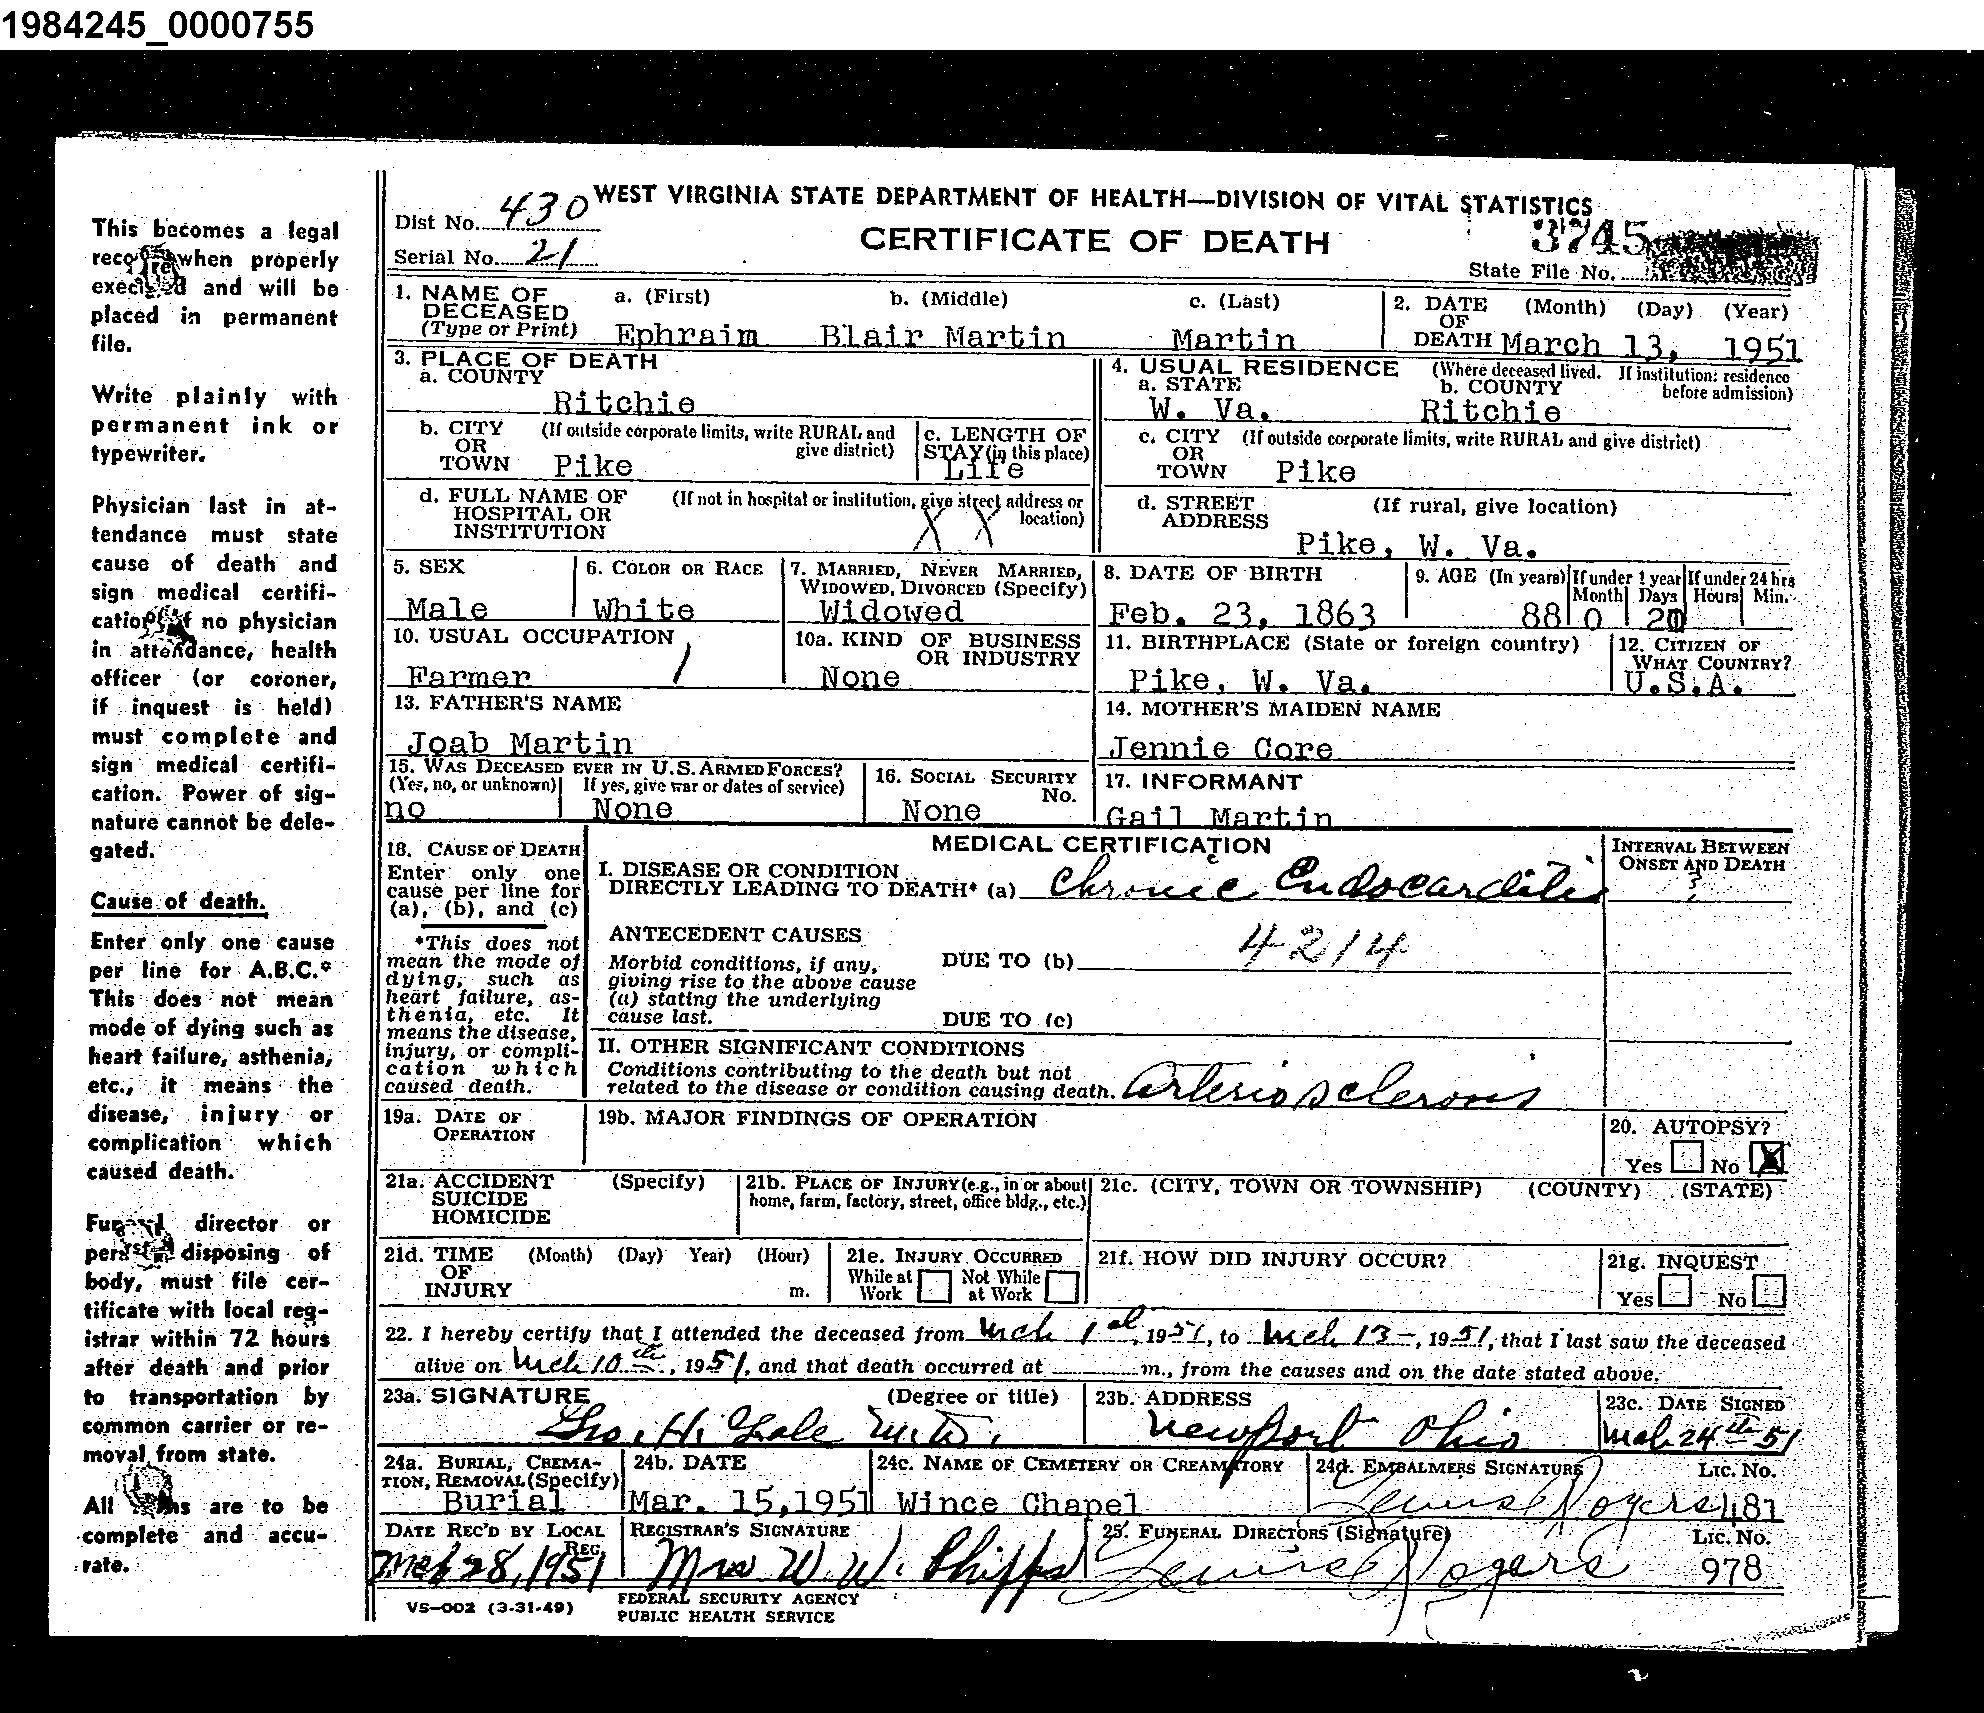 1984245_0000755
This becomes a legal
when properly
and will be
placed in permanent
file.
Write plainly with
permanent ink or
typewriter.
Physician last in at-
tendance must state
cause of death and
sign medical certifi-
no physician
in attendance, health
officer (or coroner,
if inquest is held)
must complete and
sign medical certifi-
cation. Power of sig-
nature cannot be dele-
gated.
Cause of death.
Enter only one cause
per line for A.B.C.*
This does not mean
mode of dying such as
heart failure, asthenia,
etc., it means the
disease, injury or
complication which
caused death.
director or
disposing of
body, must file cer-
tificate with local reg-
istrar within 72 hours
after death and prior
to transportation by
common carrier or re-
moval from state.
All are to be
complete and accu-
rate.
WEST VIRGINIA STATE DEPARTMENT OF HEALTH—DIVISION OF VITAL STATISTICS
Dist No. 430
CERTIFICATE OF DEATH
3745
Serial No. 21
State File No.
1. NAME OF DECEASED (Type or Print) a. (First) b. (Middle) c. (Last)
Ephraim Blair Martin Martin
2. DATE OF DEATH (Month) (Day) (Year)
March 13, 1951
3. PLACE OF DEATH
a. COUNTY
Ritchie
4. USUAL RESIDENCE (Where deceased lived. If institution: residence before admission)
a. STATE b. COUNTY
W. Va. Ritchie
b. CITY OR TOWN (If outside corporate limits, write RURAL and give district)
Pike
c. LENGTH OF STAY (in this place)
Life
c. CITY OR TOWN (If outside corporate limits, write RURAL and give district)
Pike
d. FULL NAME OF HOSPITAL OR INSTITUTION (If not in hospital or institution, give street address or location)
X X
d. STREET ADDRESS (If rural, give location)
Pike, W. Va.
5. SEX
Male
6. COLOR OR RACE
White
7. MARRIED, NEVER MARRIED, WIDOWED, DIVORCED (Specify)
Widowed
8. DATE OF BIRTH
Feb. 23, 1863
9. AGE (In years) If under 1 year Month Days If under 24 hrs Hours Min.
88 0
10. USUAL OCCUPATION
Farmer /
10a. KIND OF BUSINESS OR INDUSTRY
None
11. BIRTHPLACE (State or foreign country)
Pike, W. Va.
12. CITIZEN OF WHAT COUNTRY?
U.S.A.
13. FATHER'S NAME
Joab Martin
14. MOTHER'S MAIDEN NAME
Jennie Core
15. WAS DECEASED EVER IN U.S. ARMED FORCES?
(Yes, no, or unknown) If yes, give war or dates of service)
no None
16. SOCIAL SECURITY No.
None
17. INFORMANT
Gail Martin
18. CAUSE OF DEATH
Enter only one
cause per line for
(a), (b), and (c)
*This does not
mean the mode of
dying, such as
heart failure, as-
thenia, etc. It
means the disease,
injury, or compli-
cation which
caused death.
MEDICAL CERTIFICATION
I. DISEASE OR CONDITION
DIRECTLY LEADING TO DEATH* (a) Chronic Endocarditis
INTERVAL BETWEEN ONSET AND DEATH
?
ANTECEDENT CAUSES
Morbid conditions, if any,
giving rise to the above cause
(a) stating the underlying
cause last.
DUE TO (b) 4214
DUE TO (c)
II. OTHER SIGNIFICANT CONDITIONS
Conditions contributing to the death but not
related to the disease or condition causing death. Arteriosclerosis
19a. DATE OF OPERATION
19b. MAJOR FINDINGS OF OPERATION
20. AUTOPSY?
Yes No X
21a. ACCIDENT SUICIDE HOMICIDE (Specify)
21b. PLACE OF INJURY (e.g., in or about home, farm, factory, street, office bldg., etc.)
21c. (CITY, TOWN OR TOWNSHIP) (COUNTY) (STATE)
21d. TIME OF INJURY (Month) (Day) Year) (Hour) m.
21e. INJURY OCCURRED
While at Work Not While at Work
21f. HOW DID INJURY OCCUR?
21g. INQUEST
Yes No
22. I hereby certify that I attended the deceased from Mch 1st, 1951, to Mch 13-, 1951, that I last saw the deceased
alive on Mch 10th, 1951, and that death occurred at m., from the causes and on the date stated above.
23a. SIGNATURE (Degree or title)
Geo. H. Gale M.D.
23b. ADDRESS
Newport Ohio
23c. DATE SIGNED
Mch 24th 51
24a. BURIAL, CREMATION, REMOVAL (Specify)
Burial
24b. DATE
Mar. 15,1951
24c. NAME OF CEMETERY OR CREAMATORY
Wince Chapel
24d. EMBALMERS SIGNATURE Lic. No.
Rogers 1481
DATE REC'D BY LOCAL REG.
Mch 28, 1951
REGISTRAR'S SIGNATURE
Mrs W. W. Phipps
25. FUNERAL DIRECTORS (Signature) Lic. No.
Rogers 978
VS-002 (3-31-49)
FEDERAL SECURITY AGENCY
PUBLIC HEALTH SERVICE